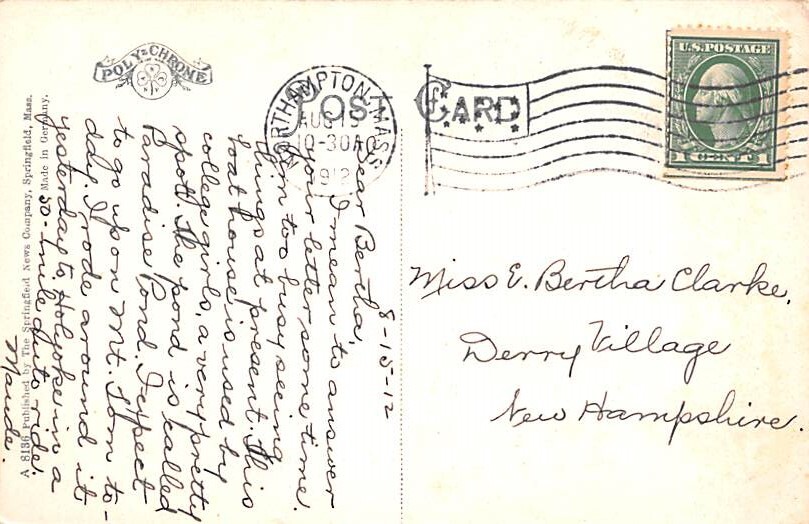 POLY-CHROME
POST CARD
NORTHAMPTON, MASS.
AUG 15
10-30A
1912
U.S. POSTAGE
1 CENT 1
A 8136 Published by The Springfield News Company, Springfield, Mass.
Made in Germany.
8-15-12
Dear Bertha,
I mean to answer
your letter some time.
I'm too busy seeing
things at present. This
boat house is used by
college girls, a very pretty
spot. The pond is called
Paradise Pond. I expect
to go up on Mt. Tom to-
day. I rode around it
yesterday to Holyoke in a
50-mile auto ride.
Maude.
Miss E. Bertha Clarke,
Derry Village
New Hampshire.